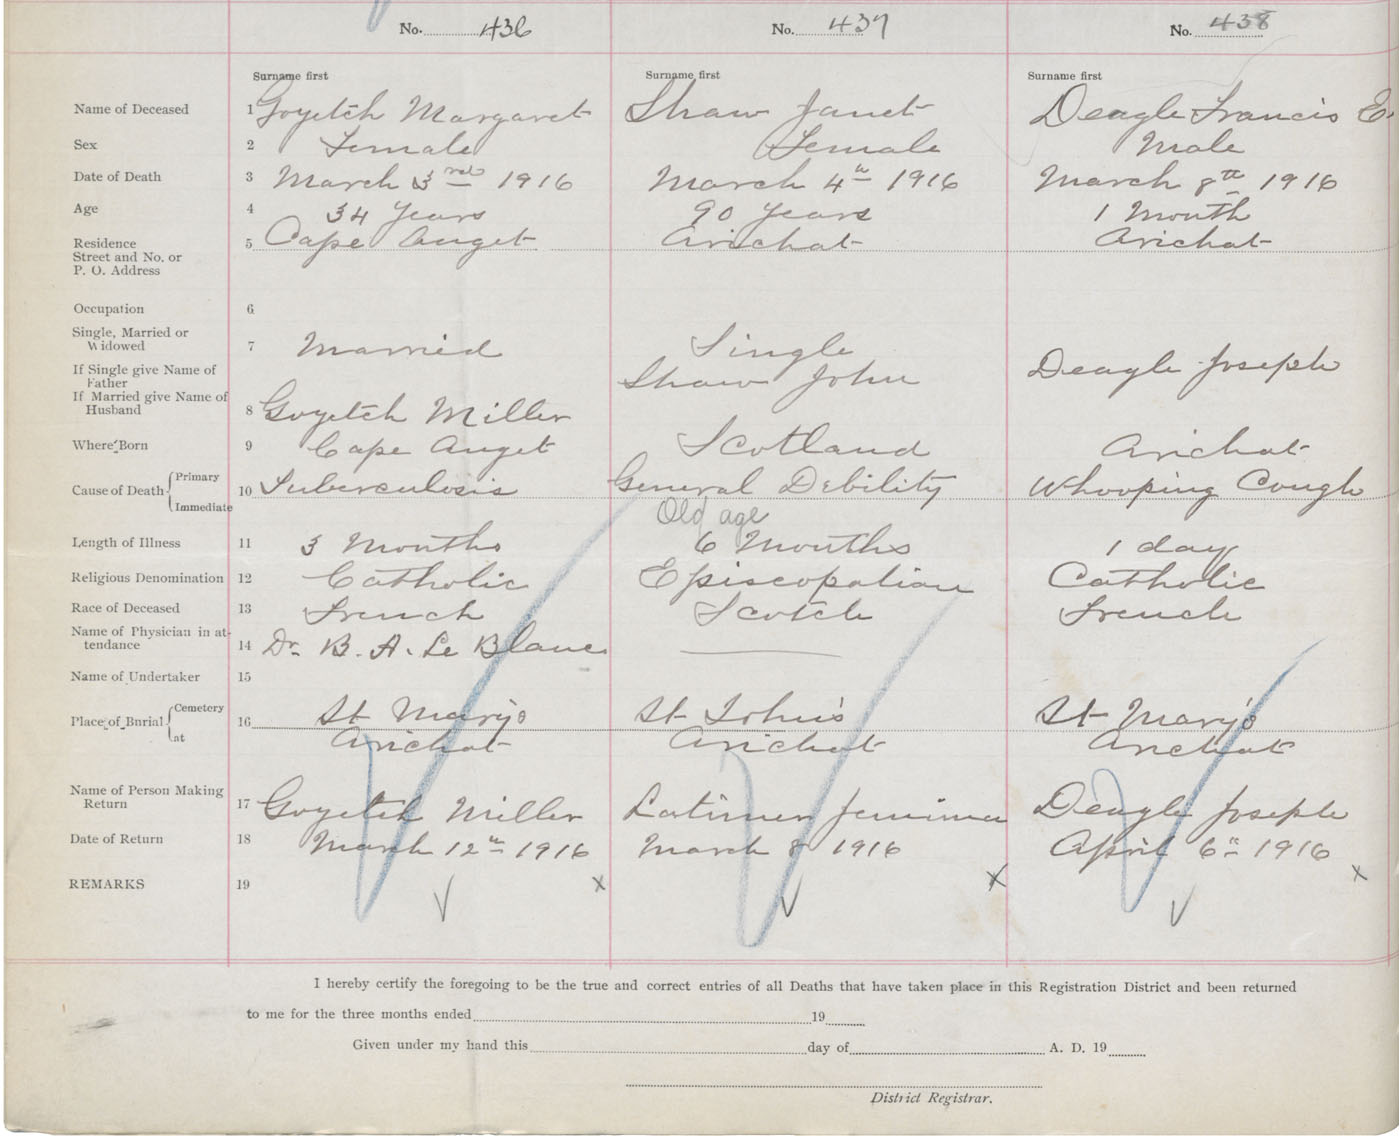 No. 436 No. 437 No. 438
Surname first Surname first Surname first
Name of Deceased 1 Goyetch Margaret Shaw Janet Deagle Francis E.
Sex 2 Female Female Male
Date of Death 3 March 3rd 1916 March 4th 1916 March 8th 1916
Age 4 34 Years 90 Years 1 Month
Residence 5 Cape Auget Arichat Arichat
Street and No. or
P. O. Address
Occupation 6
Single, Married or
Widowed 7 Married Single
If Single give Name of
Father Shaw John Deagle Joseph
If Married give Name of
Husband 8 Goyetch Miller
Where Born 9 Cape Auget Scotland Arichat
Cause of Death { Primary 10 Tuberculosis General Debility Whooping Cough
Immediate Old age
Length of Illness 11 3 Months 6 Months 1 day
Religious Denomination 12 Catholic Episcopalian Catholic
Race of Deceased 13 French Scotch French
Name of Physician in at-
tendance 14 Dr. B. A. Le Blanc
Name of Undertaker 15
Place of Burial { Cemetery 16 St Mary's St John's St Mary's
at Arichat Arichat Arichat
Name of Person Making
Return 17 Goyetch Miller Latimer Jemima Deagle Joseph
Date of Return 18 March 12th 1916 March 8 1916 April 6th 1916
REMARKS 19 x x x
I hereby certify the foregoing to be the true and correct entries of all Deaths that have taken place in this Registration District and been returned
to me for the three months ended 19
Given under my hand this day of A. D. 19
District Registrar.